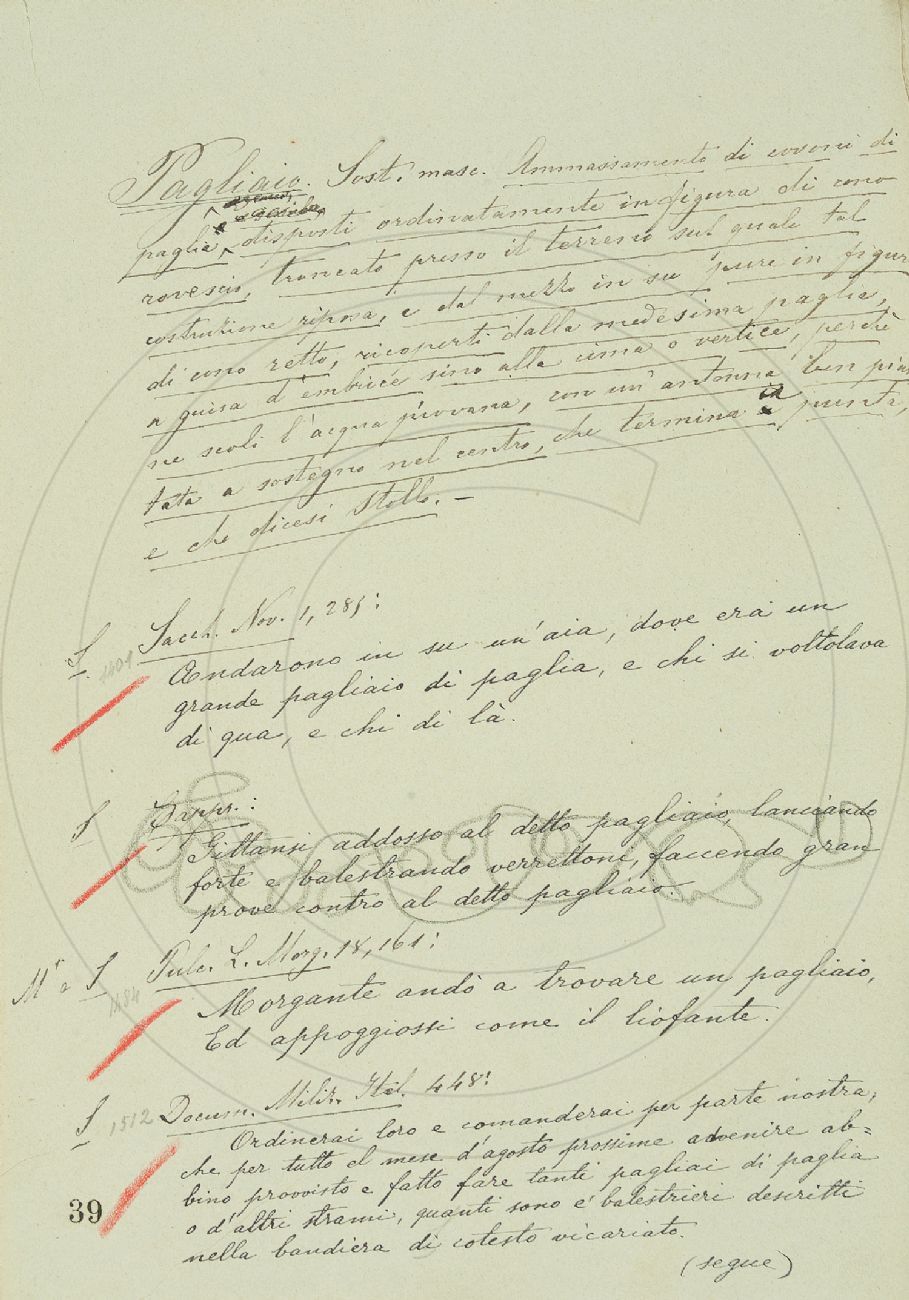 Pagliaio. Sost. masc. Ammassamento di covoni di
paglia, disposti ordinatamente in figura di cono
rovescio, troncato presso il terreno sul quale tal
costruzione riposa, e dal mezzo in su pure in figura
di cono retto, ricoperti dalla medesima paglia,
a guisa d'embrice sino alla cima o vertice, perchè
ne scoli l'acqua piovana, con un'antenna ben pian
tata a sostegno nel centro, che termina in punta,
e che dicesi Stollo. –
S Sacch. Nov. 1, 285:
Andarono in su un'aia, dove era un
grande pagliaio di paglia, e chi si voltolava
di qua, e chi di là.
S Eappr.:
Gittansi addosso al detto pagliaio, lanciando
forte e balestrando verrettoni, faccendo gran
prove contro al detto pagliaio
Mr a S 1484 Pulc. L. Morg. 18, 161:
Morgante andò a trovare un pagliaio,
Ed appoggiossi come il liofante.
S 1512 Docum. Miliz. Ital. 448:
Ordinerai loro e comanderai per parte nostra,
che per tutto el mese d'agosto prossime advenire ab=
bino provvisto e fatto fare tanti pagliai di paglia
o d'altri strami, quanti sono e' balestrieri descritti
nella bandiera di cotesto vicariato.
(segue)
39